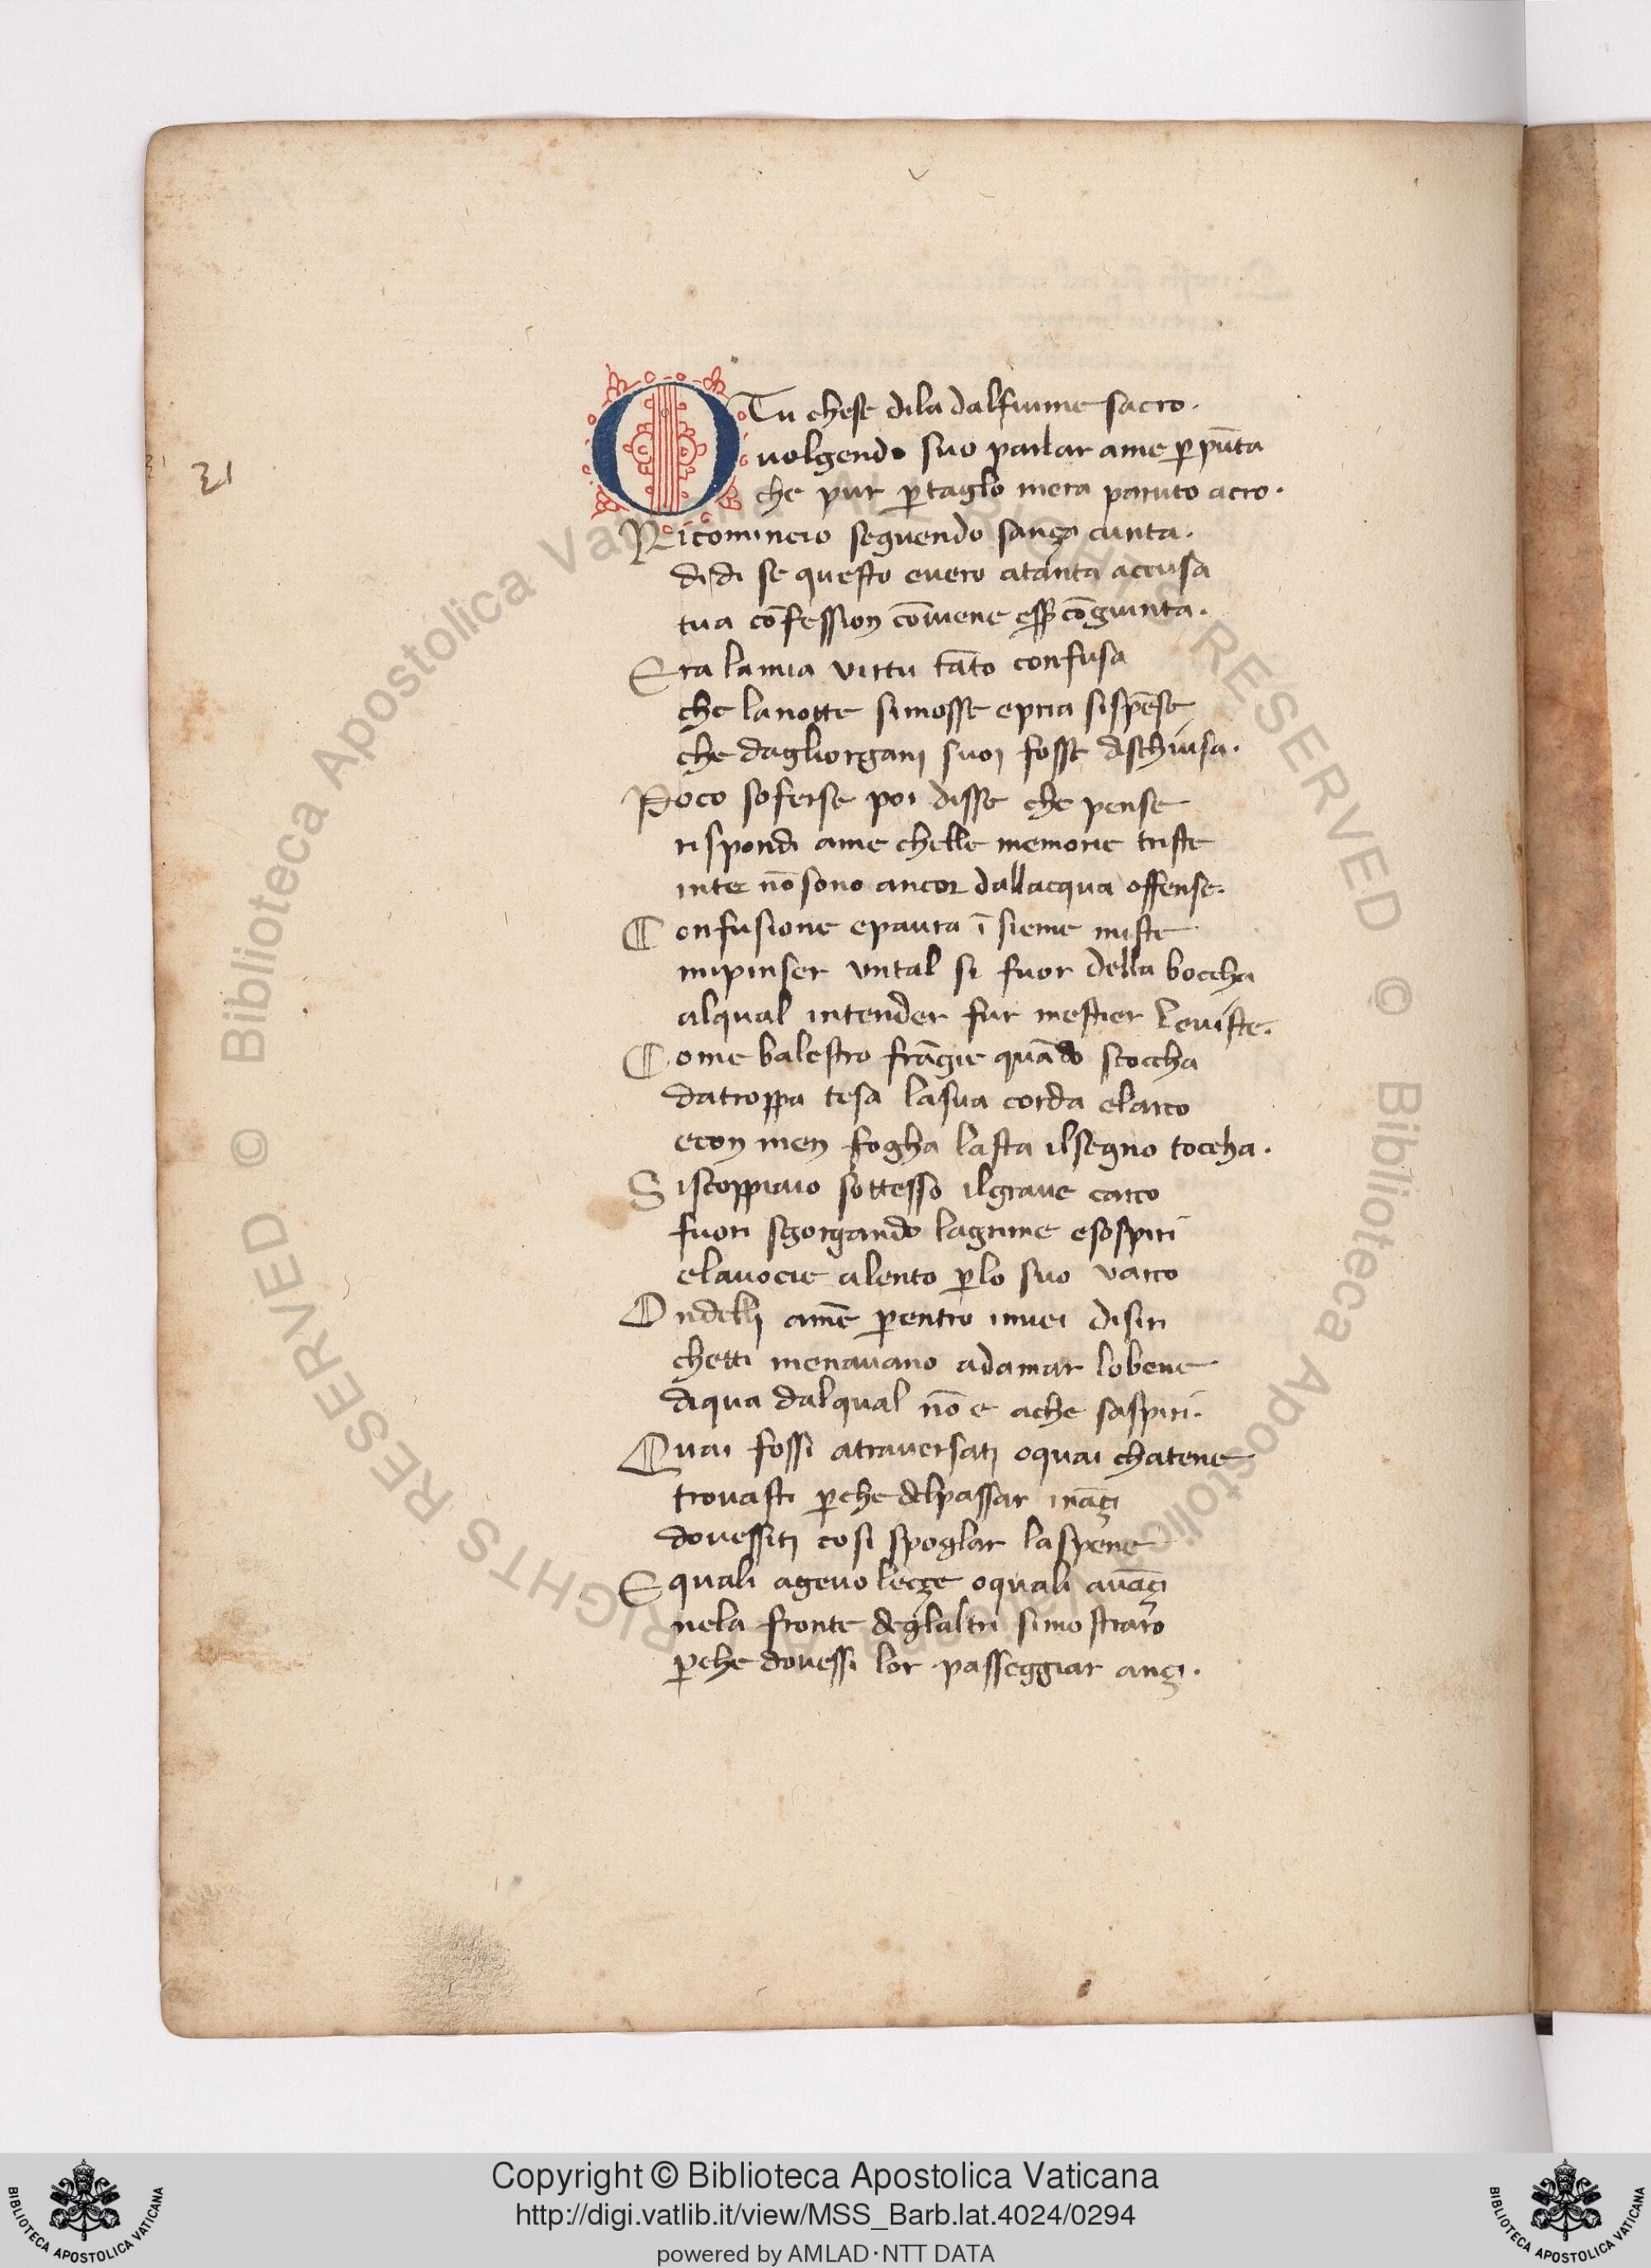 31
O Tu chese dila dalfiume sacro.
uolgendo suo parlar ame ꝑ pūta
che pur ꝑ taglo mera paruto acro.
Ricomincio seguendo sança cunta.
di di se questo euero atanta accusa
tua cōfession cōuiene congiunta.
Era lamia virtu tāto confusa
che lauotte simosse epria sispēse
che dagliorganj suoj fosse dischiusa.
Poco soferse poi disse che pense
rispondi ame chelle memorie triste
inte nō sono ancor dallacqua offense.
Confusione epaura ī sieme miste
mipinser vntal si fuor della boccha
alqual intender fur mestier leuiste.
Come balestro frāgie quādo scoccha
datroppa tesa lasua corda elarco
econ men fogha lasta ilsegno toccha.
Siscoppiaio sottesso ilgraue carco
fuori sgorgando lagrime esospiri
elauocie alento ꝑlo suo varco
Ondellj amē ꝑentro imiei disiri
chetti menauano adamar lobene
diqua dalqual nō e ache saspiri.
Quai fossi atrauersatj oquai chatene
trouasti ꝑche delpassar ināçi
douessitj cosi spoglar laspene
Equali ageuoleçze oquali auāçi
nela fronte deglaltri simostraro
ꝑche douessi lor passeggiar ançi.
© Biblioteca Apostolica Vaticana ALL RIGHTS RESERVED © Biblioteca Apostolica Vaticana ALL RIGHTS RESERVED
Copyright © Biblioteca Apostolica Vaticana
http://digi.vatlib.it/view/MSS_Barb.lat.4024/0294
powered by AMLAD·NTT DATA
BIBLIOTECA APOSTOLICA VATICANA
BIBLIOTECA APOSTOLICA VATICANA